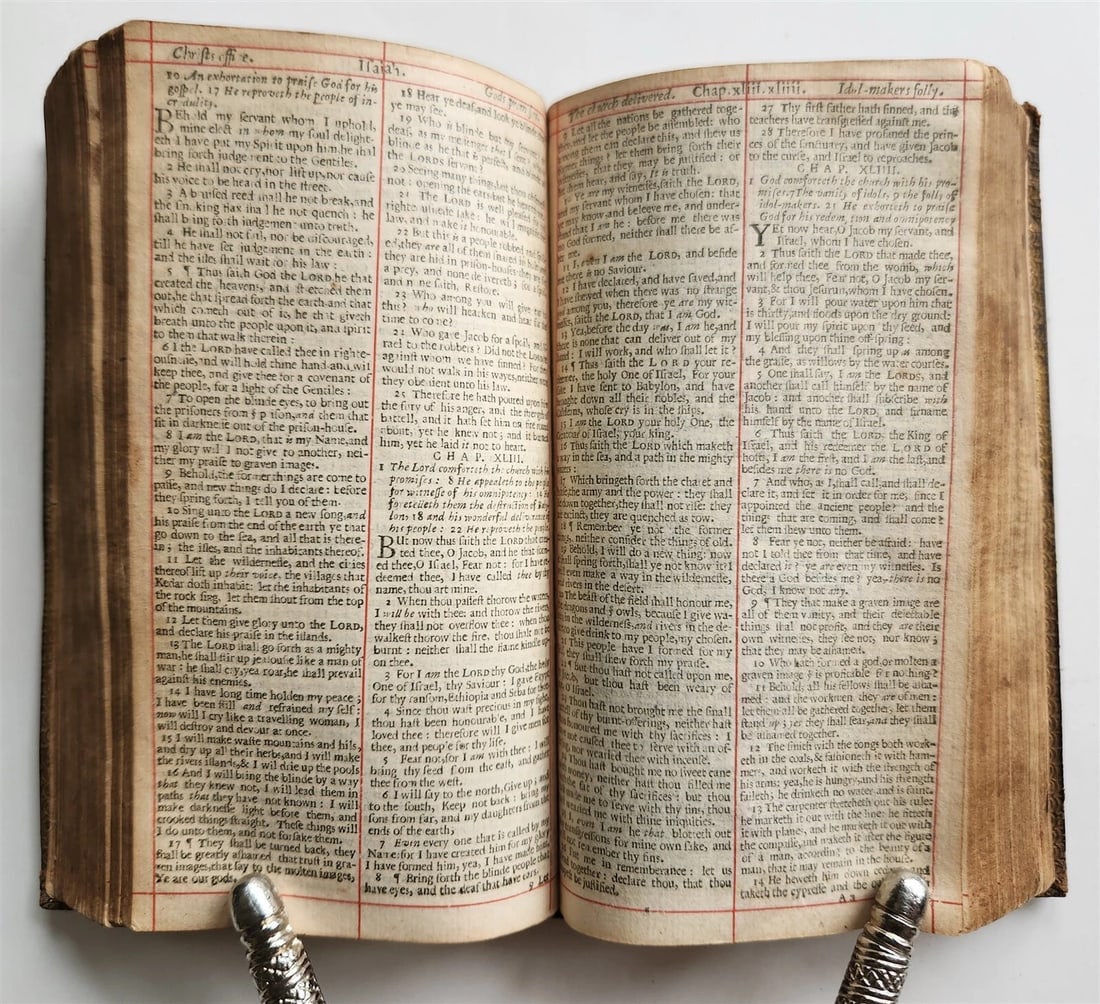 Christs office.
Isaiah.
10 An exhortation to praise God for his
gospel. 17 He reproveth the people of in-
credulity.
BEhold my servant whom I uphold,
mine elect in whom my soul delight-
eth I have put my Spirit upon him, he shal
bring forth judgement to the Gentiles.
2 He shall not cry, nor lift up, nor cause
his voice to be heard in the street.
3 A bruised reed shall he not break, and
the smoking flax shall he not quench: he
shall bring forth judgement unto truth.
4 He shall not fail, nor be discouraged,
till he have set judgement in the earth:
and the isles shall wait for his law:
5 ¶ Thus saith God the LORD, he that
created the heavens, and stretched them
out, he that spread forth the earth and that
which cometh out of it, he that giveth
breath unto the people upon it, and spirit
to them that walk therein:
6 I the LORD have called thee in righte-
ousnesse, and will hold thine hand and wil
keep thee, and give thee for a covenant of
the people, for a light of the Gentiles:
7 To open the blinde eyes, to bring out
the prisoners from yͤ prison, and them that
sit in darknesse out of the prison-house.
8 I am the LORD, that is my Name, and
my glory wil I not give to another, nei-
ther my praise to graven images.
9 Behold, the former things are come to
passe, and new things do I declare: before
they spring forth, I tell you of them.
10 Sing unto the LORD a new song, and
his praise from the end of the earth ye that
go down to the sea, and all that is there-
in; the isles, and the inhabitants thereof.
11 Let the wildernesse, and the cities
thereof lift up their voice, the villages that
Kedar doth inhabit: let the inhabitants of
the rock sing, let them shout from the top
of the mountains.
12 Let them give glory unto the LORD,
and declare his praise in the islands.
13 The LORD shall go forth as a mighty
man, he shall stir up jealousie like a man of
war: he shall cry, yea roar, he shall prevail
against his enemies.
14 I have long time holden my peace;
I have been still and refrained my self:
now will I cry like a travelling woman, I
will destroy and devour at once.
15 I will make waste mountains and hils,
and dry up all their herbs, and I will make
the rivers islands, & I wil drie up the pools
16 And I will bring the blinde by a way
that they knew not, I will lead them in
paths that they have not known: I will
make darknesse light before them, and
crooked things straight. These things will
I do unto them, and not forsake them.
17 ¶ They shall be turned back, they
shall be greatly ashamed that trust in gra-
ven images, that say to the molten images,
Ye are our gods.
18 Hear ye deaf, and look ye blinde
ye may see.
19 Who is blinde but my
deaf, as my messenger that I sent?
blinde as he that is perfect, and
the LORDS servant?
20 Seeing many things, but thou
not: opening the ears, but he heareth
21 The LORD is well pleased
righteousnesse sake: he will magnifie
law, and make it honourable.
22 But this is a people robbed and
ed, they are all of them snared in
they are hid in prison-houses: they are
a prey, and none delivereth; for a
and none saith, Restore.
23 Who among you will give
this? who will hearken and hear for
time to come?
24 Who gave Jacob for a spoil, and Is-
rael to the robbers? Did not the LORD
against whom we have sinned? For
would not walk in his wayes, neither
they obedient unto his law.
25 Therefore he hath poured upon
the fury of his anger, and the strength
battell, and it hath set him on fire round
about, yet he knew not; and it burned
him, yet he laid it not to heart.
CHAP. XLIII.
1 The Lord comforteth the church with his
promises: 8 He appealeth to the people
for witnesse of his omnipotency: 14 He
foretelleth them the destruction of Baby-
lon; 18 and his wonderful deliverance
his people: 22 He reproveth the people
BUt now thus saith the LORD that crea-
ted thee, O Jacob, and he that form-
ed thee, O Israel, Fear not: for I have re-
deemed thee, I have called thee by thy
name, thou art mine.
2 When thou passest thorow the waters,
I will be with thee: and thorow the rivers,
they shall not overflow thee: when thou
walkest thorow the fire, thou shalt not be
burnt: neither shall the flame kindle up-
on thee.
3 For I am the LORD thy God, the holy
One of Israel, thy Saviour: I gave Egypt
for thy ransom, Ethiopia and Seba for thee.
4 Since thou wast precious in my sight,
thou hast been honourable, and I have
loved thee: therefore will I give men for
thee, and people for thy life.
5 Fear not, for I am with thee: I will
bring thy seed from the east, and gather
thee from the west.
6 I will say to the north, Give up; and
to the south, Keep not back: bring my
sons from far, and my daughters from the
ends of the earth;
7 Even every one that is called by my
Name: for I have created him for my glory
I have formed him, yea, I have made him.
8 ¶ Bring forth the blinde people that
have eyes, and the deaf that have ears.
9 Let
The church delivered. Chap. xliii. xliiii. Idol-makers folly.
9 Let all the nations be gathered toge-
and let the people be assembled: who
among them can declare this, and shew us
former things? let them bring forth their
that they may be justified: or
them hear, and say, It is truth.
10 Ye are my witnesses, saith the LORD,
and my servant whom I have chosen: that
may know and beleeve me, and under-
that I am he: before me there was
no God formed, neither shall there be af-
me.
11 I, even I am the LORD, and beside
me there is no Saviour.
12 I have declared, and have saved, and
I have shewed when there was no strange
among you, therefore ye are my wit-
nesses, saith the LORD, that I am God.
13 Yea, before the day was, I am he, and
there is none that can deliver out of my
hand: I will work, and who shall let it?
14 ¶ Thus saith the LORD your re-
deemer, the holy One of Israel, For your
sake I have sent to Babylon, and have
brought down all their nobles, and the
Caldeans, whose cry is in the ships.
15 I am the LORD your holy One, the
Creatour of Israel, your king.
16 Thus saith the LORD which maketh
way in the sea, and a path in the mighty
waters:
17 Which bringeth forth the charet and
the army and the power: they shall
lie down together, they shall not rise: they
are extinct, they are quenched as tow.
18 ¶ Remember ye not the former
things, neither consider the things of old.
19 Behold, I will do a new thing: now
it shall spring forth, shall ye not know it? I
will even make a way in the wildernesse,
and rivers in the desert.
20 The beast of the field shall honour me,
the dragons and yͤ owls, because I give wa-
ters in the wildernesse, and rivers in the de-
sert, to give drink to my people, my chosen.
21 This people have I formed for my
self, they shall shew forth my praise.
22 ¶ But thou hast not called upon me,
O Jacob, but thou hast been weary of
me, O Israel.
23 Thou hast not brought me the small
cattell of thy burnt-offerings, neither hast
thou honoured me with thy sacrifices: I
have not caused thee to serve with an of-
fering, nor wearied thee with incense.
24 Thou hast bought me no sweet cane
with money, neither hast thou filled me
with the fat of thy sacrifices: but thou
hast made me to serve with thy sins, thou
hast wearied me with thine iniquities.
25 I, even I am he that blotteth out
thy transgressions for mine own sake, and
will not remember thy sins.
26 Put me in remembrance: let us
plead together: declare thou, that thou
mayest be justified.
27 Thy first father hath sinned, and thy
teachers have transgressed against me.
28 Therefore I have profaned the prin-
ces of the sanctuary, and have given Jacob
to the curse, and Israel to reproaches.
CHAP. XLIIII.
1 God comforteth the church with his pro-
mises. 7 The vanity of idols, 9 the folly of
idol-makers. 21 He exhorteth to praise
God for his redemption and omnipotency
YEt now hear, O Jacob my servant, and
Israel, whom I have chosen.
2 Thus saith the LORD that made thee,
and formed thee from the womb, which
will help thee, Fear not, O Jacob my ser-
vant, & thou Jesurun, whom I have chosen.
3 For I will pour water upon him that
is thirsty, and floods upon the dry ground:
I will pour my spirit upon thy seed, and
my blessing upon thine off-spring:
4 And they shall spring up as among
the grasse, as willows by the water courses.
5 One shall say, I am the LORDS, and
another shall call himself by the name of
Jacob: and another shall subscribe with
his hand unto the LORD, and surname
himself by the name of Israel.
6 Thus saith the LORD the King of
Israel, and his redeemer the LORD of
hosts, I am the first, and I am the last, and
besides me there is no God.
7 And who, as I, shall call, and shall de-
clare it, and set it in order for me, since I
appointed the ancient people? and the
things that are coming, and shall come?
let them shew unto them.
8 Fear ye not, neither be afraid: have
not I told thee from that time, and have
declared it? ye are even my witnesses. Is
there a God besides me? yea, there is no
God, I know not any.
9 ¶ They that make a graven image are
all of them vanity, and their delectable
things shal not profit, and they are their
own witnesses, they see not, nor know;
that they may be ashamed.
10 Who hath formed a god, or molten a
graven image yͭ is profitable for nothing?
11 Behold, all his fellows shall be asha-
med: and the workmen they are of men:
let them all be gathered together, let them
stand up; yet they shall fear, and they shall
be ashamed together.
12 The smith with the tongs both work-
eth in the coals, & fashioneth it with ham-
mers, and worketh it with the strength of
his arms: yea, he is hungry, and his strength
faileth; he drinketh no water, and is faint.
13 The carpenter stretcheth out his rule:
he marketh it out with the line: he fitteth
it with planes, and he marketh it out with
the compasse, and maketh it after the figure
of a man, according to the beauty of a
man, that it may remain in the house.
14 He heweth him down cedars, and
taketh the cypresse and the
A a